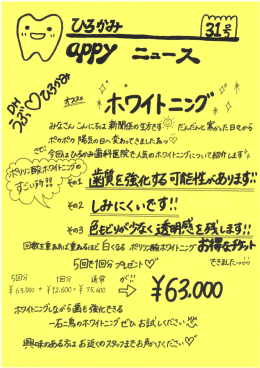 ひろかみ
31号
appy ニュース
Dr. うぶ♡ひろかみ
オススメ
ホワイトニング
みなさん こんにちは 新聞係の生方です だんだんと寒かった日々から
ポカポカ 陽気の日へ変わってきましたね♡
さて! 今回はひろかみ歯科医院で人気のホワイトニングについて紹介します
ポリリン酸ホワイトニングの
すごい所!!
その1 歯質を強化する可能性があります!!
その2 しみにくいです!!
その3 色もどりが少なく透明感を残します!!
回数を重ねれば重ねるほど白くなる ポリリン酸ホワイトニング お得なチケット
できました
5回で1回分プレゼント♡
5回分 1回分 通常 が!!
¥63.000 + ¥12.600 = ¥75,600 → ¥63.000
ホワイトニングしながら歯も強化できる
一石二鳥のホワイトニングぜひ お試しください
興味のある方は お近くのスタッフまでお声がけください♡